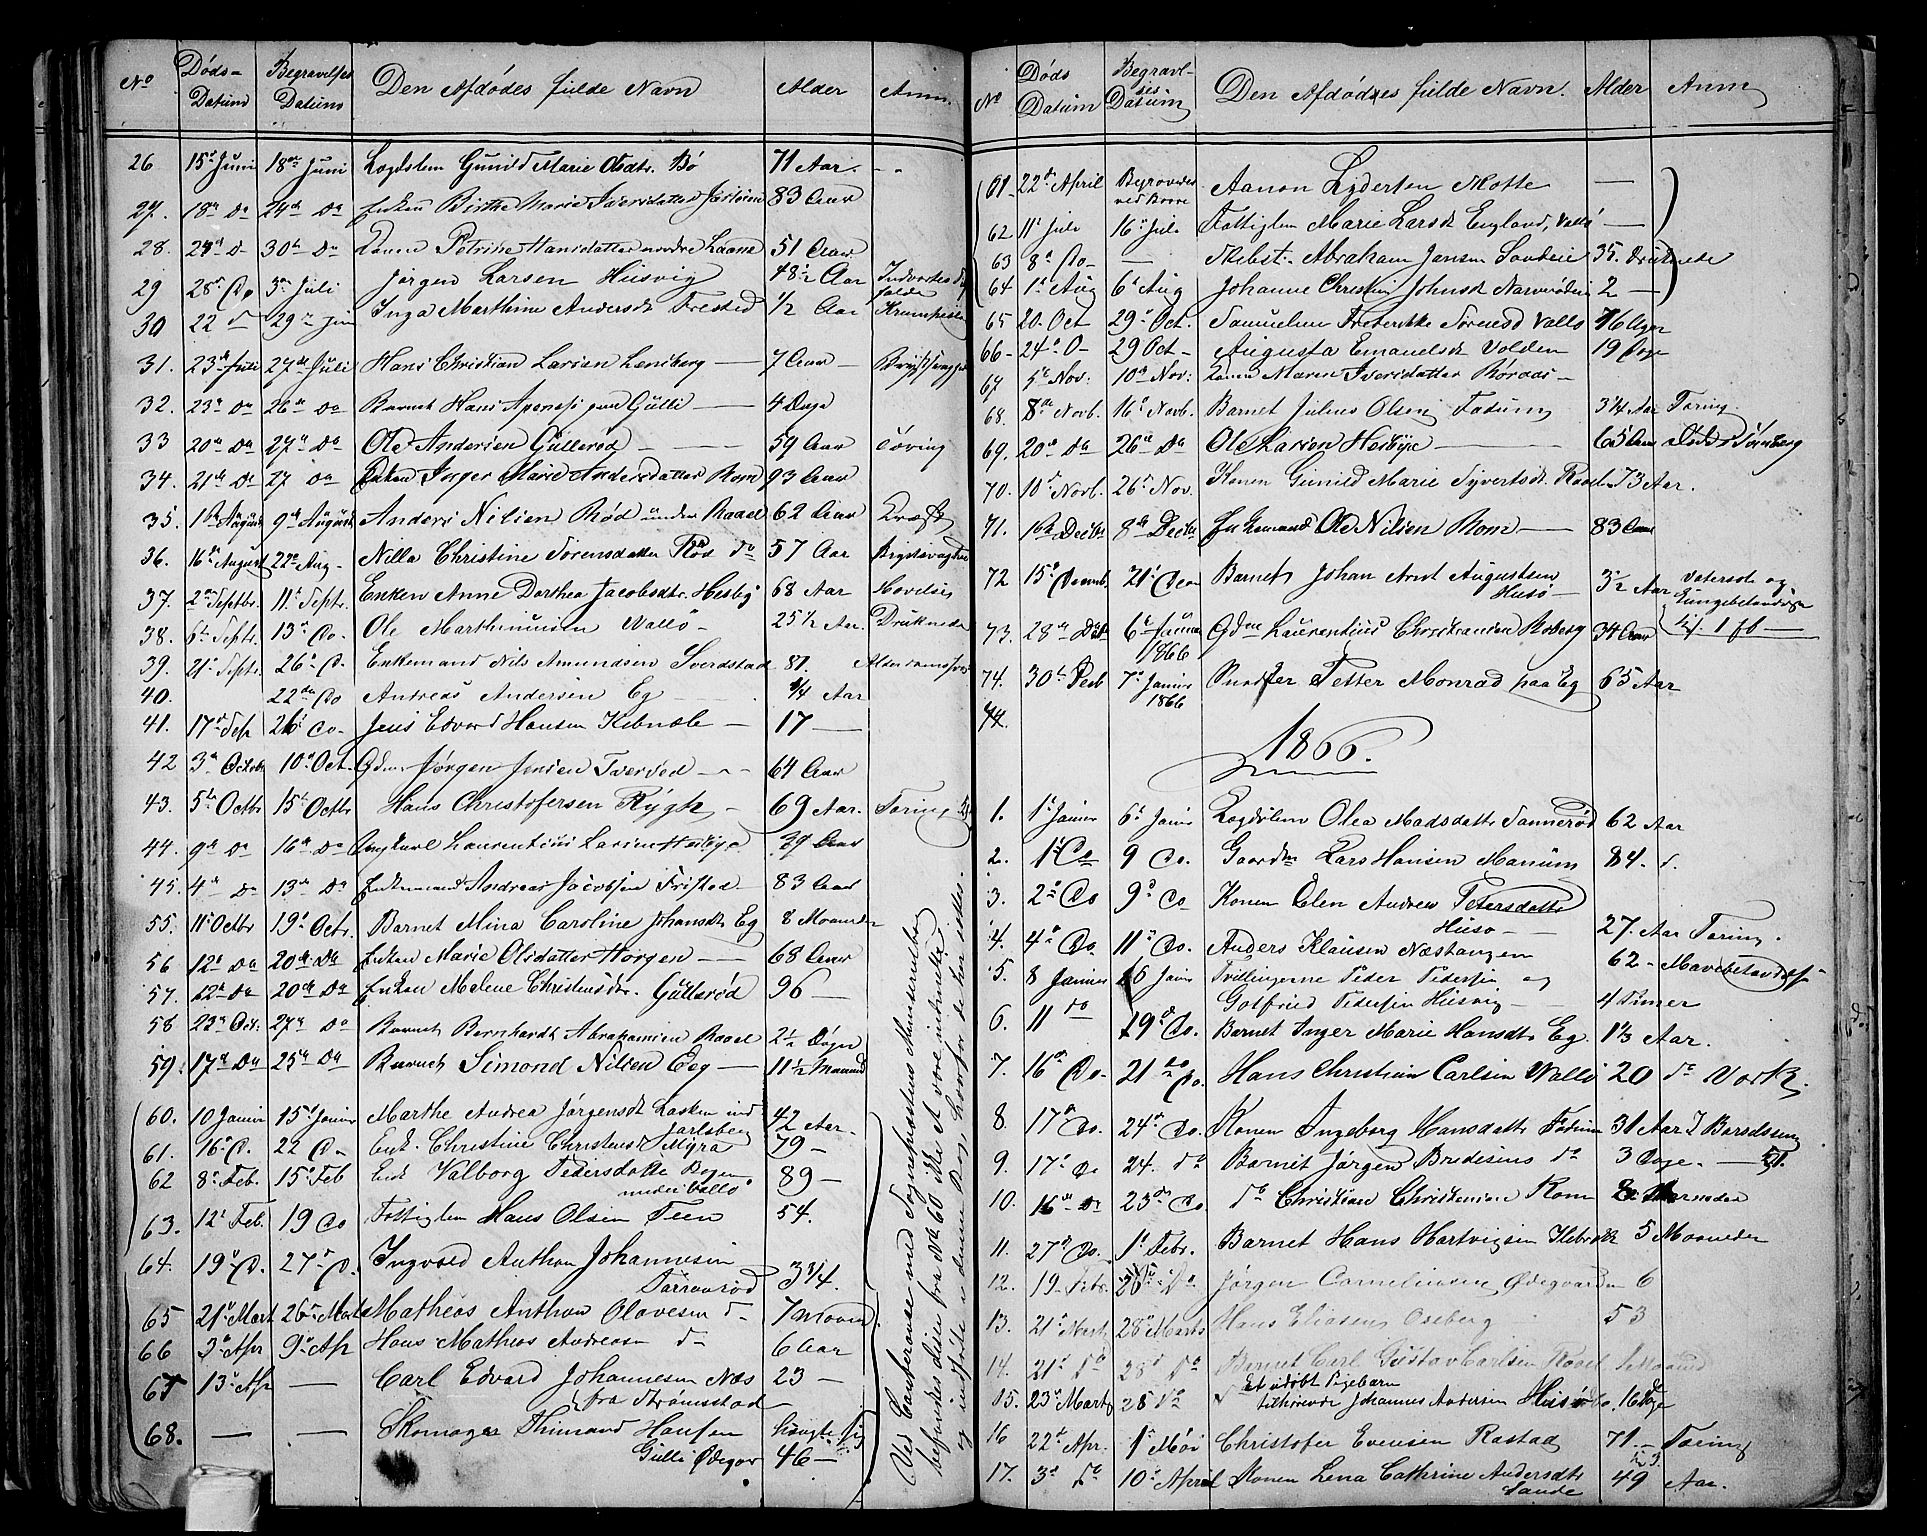 No Døds- Datum Begravelses Datum Den Afdødes fulde Navn Alder Anm.
26 15de Juni 18de Juni Logdslem Gunild Marie Olsdtr. Bø 71 Aar -
27. 18de Do 24de Do Enken Birthe Marie Iversdatter Jarlsøen 83 Aar
28. 24de Do 30te Do Konen Petrine Hansdatter nordre Laane 51 Aar
29 28de Do 3de Juli Jørgen Larsen Husvig 48½ Aar
30 22 d 29de Jun Inga Marthine Andersdt Trested ½ Aar
31. 23de Juli 27de Juli Hans Christian Larsen Lensberg 7 Aar
32. 23de Do 26de Do Barnet Hans paa Gulli 4 Dage
33 20de Do 27de Do Ole Andersen Gullerød 59 Aar Tæring
34. 21de Do 27 Do Enken Inger Marie Andersdatter Rom 93 Aar
35. 1ste August 9de August Anders Nilsen Rød under Raael 62 Aar Kræft
36. 16de August 22de Aug. Nilla Christine Sørensdatter Rød do 57 Aar
37. 2de Septbr. 11te Septr. Enken Anne Dorthea Jacobsdtr. Hesby 68 Aar
38. 6te Septr. 13de Do. Ole Marthinussen Vallø 25½ Aar. Druknede
39. 21de Septr. 26de Do. Enkemand Nils Amundsen Sverdstad 87. Alderdomssvag
40. 22de Do Andreas Andersen Eg ¾ Aar
41. 17de Sep 26de Do. Jens Edvard Hansen Kebnæb 17 —
42 3de Octob 10de Oct. Gdm. Jørgen Jensen Tverved 64 Aar
43. 5te Octbr 15de Octbr Hans Christofersen Rygh 69 Aar. Tæring
44. 9de Do 16de Do Ungkarl Laurentius Larsen Hesbye 39 Aar
45. 4de Do 13de Do Enkemand Andreas Jacobsen Fristad 83 Aar
55. 11te Octbr 19de Octr. Barnet Mina Caroline Johansdt Eg 8 Maaneder
56 12te Do 20de Do Enken Marie Olsdatter Horgen 68 Aar
57. 12te Do 20de Do Enken Malene Christensdr. Gullerød 96 —
58 23de Oct. 27de Do Barnet Bernhardt Abrahamsen Raael 2½ Døgn
59. 17de Do 25de Do Barnet Simond Nilsen Eeg 11½ Maaned
60. 10 Januar 15de Januar Marthe Andrea Jørgensdt Lasken und Jarlsberg 42 Aar.
61. 16de D. 22 D. Enk. Christine Christensdt Myra 79 —
62 8de Feb. 15de Feb Enk Valborg Pedersdatte Bogen under Vallø 89 —
63. 12te Feb. 19 Do Fattiglem Hans Olsen Teen 54.
64. 19de D. 27de D. Ingvald Anthon Johannesen Tarravrød 3¾.
65 21de Mart 26de Marts Matheas Anthon Olavesen d 7 Maaned
66 3de Apr 9de Ap Hans Mathias Andreasen d 6 Aar
67 13de Ap — Carl Edvard Johannesen Næs fra Strømsstad 23 —
68. — — Skomager Thimand Hansen Gulli Ødegor hængte sig 46 —
Ved Conferanse med Sognepræstens Manserialbog befindes disse fra No 60 ikke at være indmeldte og indførte i denne Bog, hvorfor de her sættes.
No Døds Datum Begravelses Datum Den Afdødes fulde Navn. Alder Anm
61 22de April Begravedes ved Borre Aanon Lydersen Motte —
62 11te Juli 16de Juli Fattiglem Marie Larsdt England, Vallø —
63 8de Do — Abraham Jansen 35. Druknede
64 1ste Aug 6te Aug Johanne Christine Johnsdt Narverødeie 2 —
65 20. Oct 29de Oct. Samueline Frederikke Sørensd Vallø 46 Uger
66 24de O 29 Oct Augusta Emanuelsdt Volden 19 Dage
67 5te Nov. 10de Nov. Konen Maren Iversdatter Roraas
68. 8de Novb. 16de Novb. Barnet Julius Olsen Fadum 3¼ Aar Tæring
69. 20de Do 26de Do Ole Larsen Hesbye 65 Aar Døde i Tønsberg
70. 10de Novb. 26de Nov. Konen Gunild Marie Syvertsdt. Raael 73 Aar.
71. 1ste Decbr 8de Decbr Enkemand Ole Nilsen Rom 83 Aar
72 15de Decemb. 21de Decm Barnet Johan Arnt Augustsen Husø 3½ Aar Vatersot og Lungebetændelse
73. 28de Decbr 6te Januar 1866 Gdm Laurentius Christiansen Roberg 34 Aar
74. 30te Decb 7de Januar 1866 Petter Monrad paa Eg 65 Aar
74.
1866.
1. 1ste Januar 6te Janu Logdslem Olea Madsdattr Sannerød 62 Aar
2. 1ste Do 9 Do. Gaardm Lars Hansen Manum 84. d.
3. 2de Do 9de Do Konen Elen Andrea Petersdatter Husø 27. Aar Tæring.
4. 4de Do 11te Do. Anders Klausen Næstangen 62 - Mavebetændelse
5. 8 Januar 16 Janu Tvillingerne Peder Pedersen og Gotfried Pedersen Husvig 4 Timer
6. 11 do 19de Do. Barnet Inger Marie Hansdtr Eg 1⅓ Aar.
7. 16de Do. 21de Do. Hans Christian Carlsen Vallø 20 do Værk.
8. 17de Do. 24de Do. Konen Ingeborg Hansdattr Fadum 31 Aar I Barselseng
9. 17de Do 24. do Barnet Jørgen Bredesens do 3 Dage.
10. 16de Do 23de Do. do Christian Christensen Rom Maaneder
11. 27de Do. 1ste Febr. Barnet Hans Hartvigsen Ilebrekk 5 Maaneder
12. 19 Febr. 26de Do Jørgen Corneliusen Ødegaarden 6
13. 21de Marts 28de Marts Hans Eliasen Oseberg 53
14. 21de Do 28de Do Barnet Carl Gustav Carlsen Raael Maaned
15. 23de Marts 28 Do Et udøbt Pigebarn tilhørende Johannes Andersen Husø do. 16 Dage
16 22de Apr. 1ste Mai Christofer Evensen Rastad 71. Tæring
17. 3de Do 10de April Konen Lena Cathrine Andersdtr Sande 49 Aar.